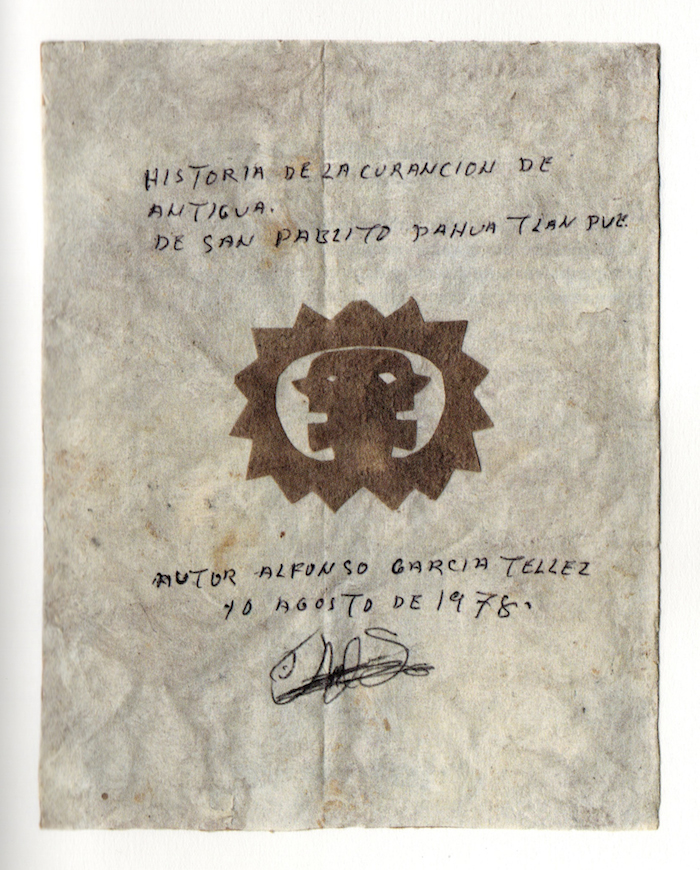 HISTORIA DE LA CURANCION DE
ANTIGUA.
DE SAN PABLITO PAHUATLAN PUE.
AUTOR ALFONSO GARCIA TELLEZ
10 AGOSTO DE 1978.